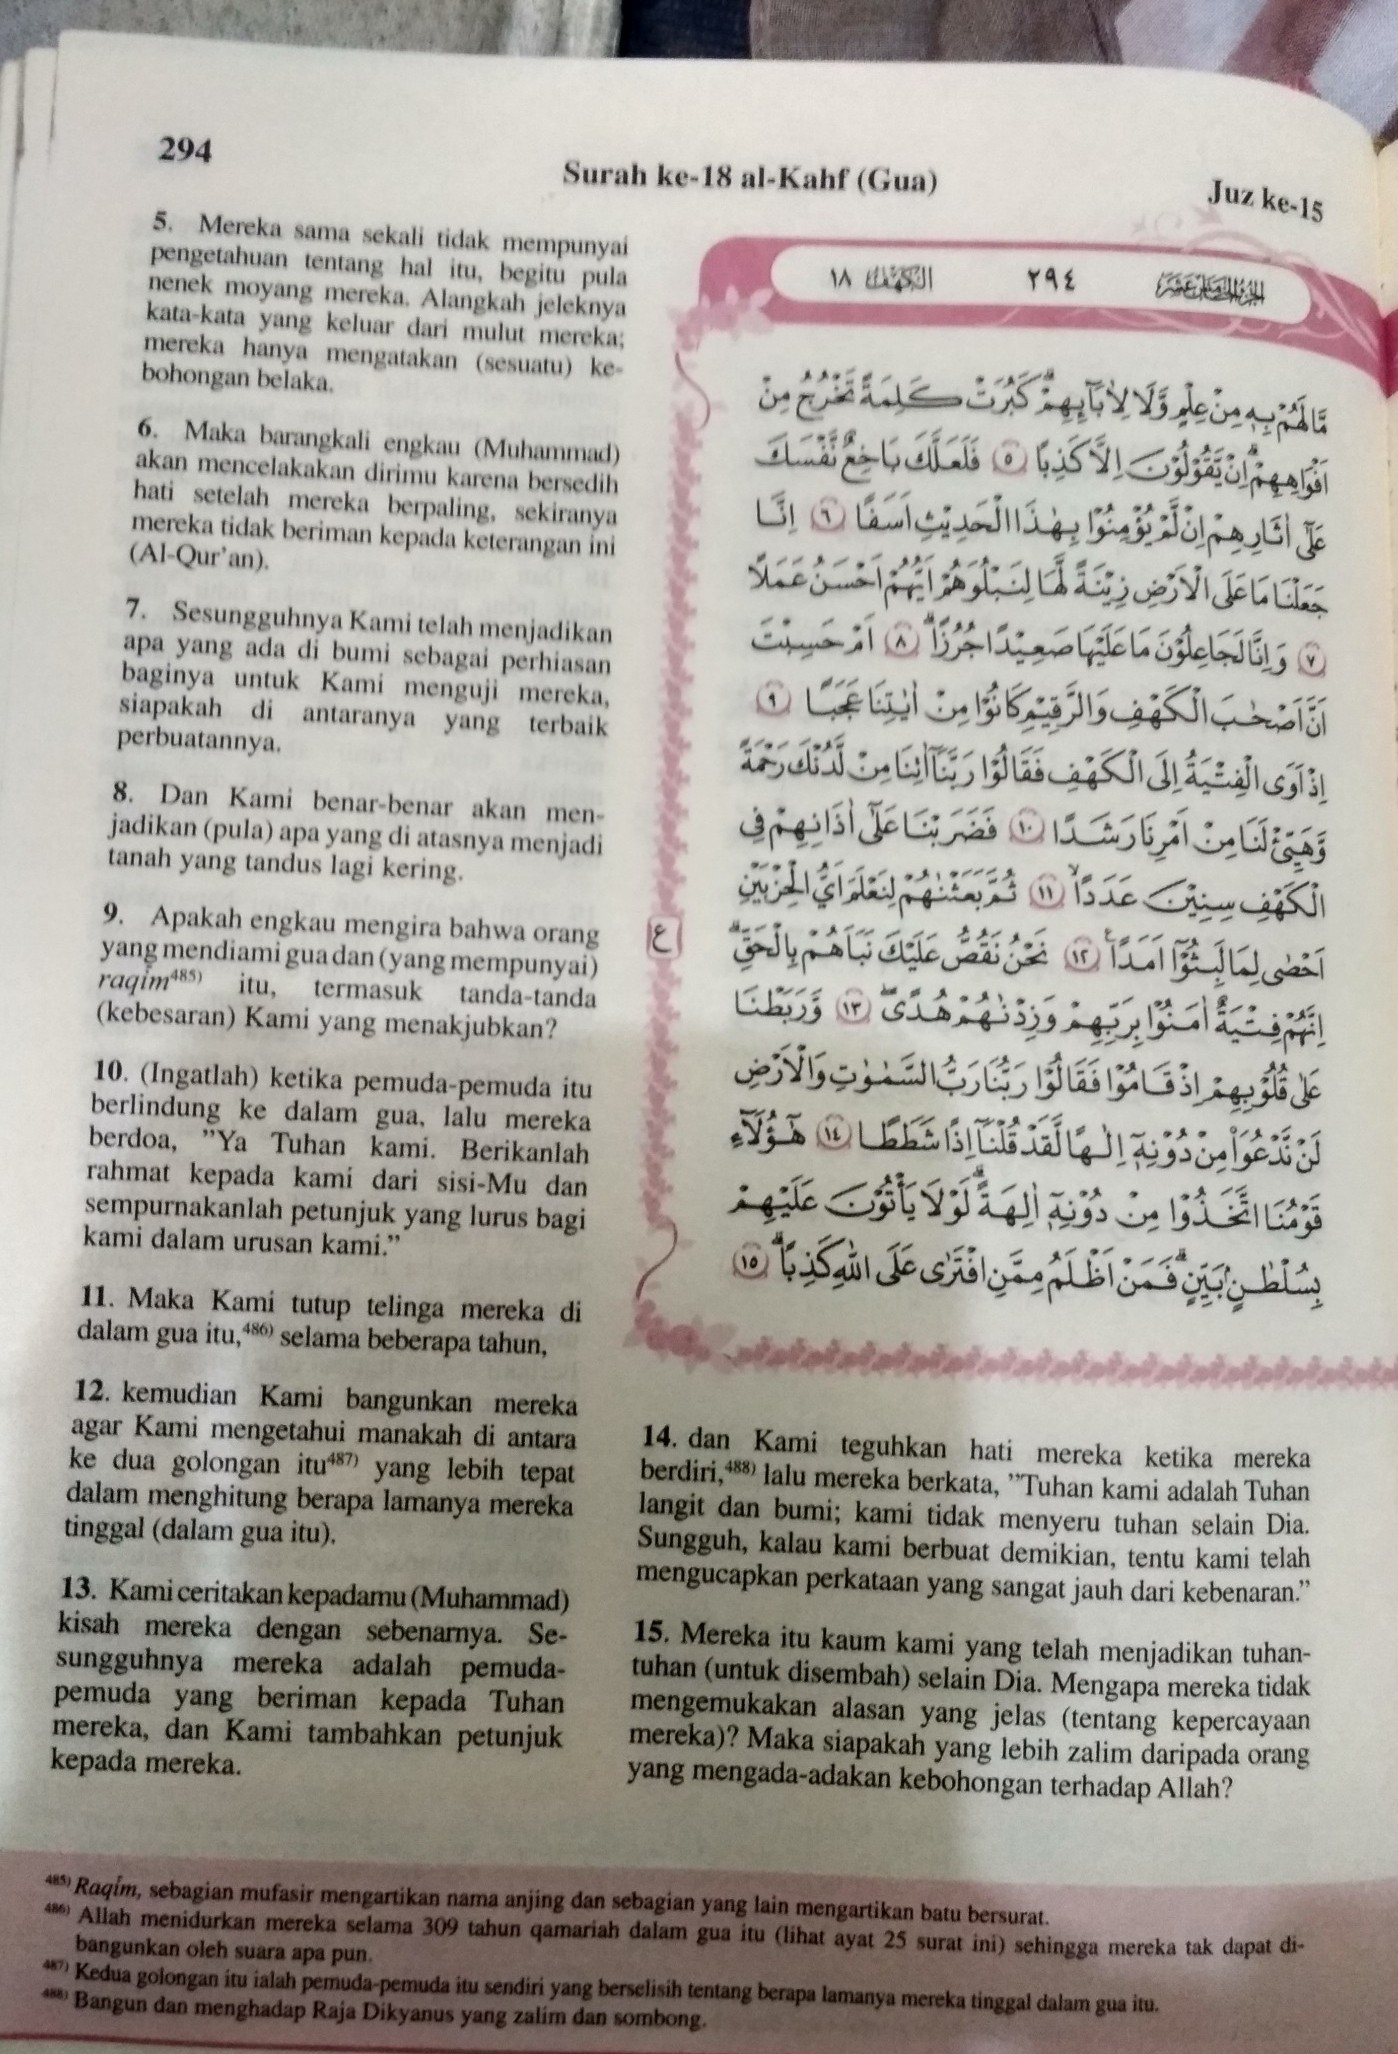 294
Surah ke-18 al-Kahf (Gua)
Juz ke-15
5. Mereka sama sekali tidak mempunyai
pengetahuan tentang hal itu, begitu pula
nenek moyang mereka. Alangkah jeleknya
kata-kata yang keluar dari mulut mereka;
mereka hanya mengatakan (sesuatu) ke-
bohongan belaka.
6. Maka barangkali engkau (Muhammad)
akan mencelakakan dirimu karena bersedih
hati setelah mereka berpaling, sekiranya
mereka tidak beriman kepada keterangan ini
(Al-Qur'an).
7. Sesungguhnya Kami telah menjadikan
apa yang ada di bumi sebagai perhiasan
baginya untuk Kami menguji mereka,
siapakah di antaranya yang terbaik
perbuatannya.
8. Dan Kami benar-benar akan men-
jadikan (pula) apa yang di atasnya menjadi
tanah yang tandus lagi kering.
9. Apakah engkau mengira bahwa orang
yang mendiami gua dan (yang mempunyai)
raqim⁴⁸⁵⁾ itu, termasuk tanda-tanda
(kebesaran) Kami yang menakjubkan?
10. (Ingatlah) ketika pemuda-pemuda itu
berlindung ke dalam gua, lalu mereka
berdoa, ”Ya Tuhan kami. Berikanlah
rahmat kepada kami dari sisi-Mu dan
sempurnakanlah petunjuk yang lurus bagi
kami dalam urusan kami.”
11. Maka Kami tutup telinga mereka di
dalam gua itu,⁴⁸⁶⁾ selama beberapa tahun,
12. kemudian Kami bangunkan mereka
agar Kami mengetahui manakah di antara
ke dua golongan itu⁴⁸⁷⁾ yang lebih tepat
dalam menghitung berapa lamanya mereka
tinggal (dalam gua itu).
13. Kami ceritakan kepadamu (Muhammad)
kisah mereka dengan sebenarnya. Se-
sungguhnya mereka adalah pemuda-
pemuda yang beriman kepada Tuhan
mereka, dan Kami tambahkan petunjuk
kepada mereka.
الجزء الخامس عشر ٢٩٤ الكهف ١٨
مَّا لَهُمْ بِهٖ مِنْ عِلْمٍ وَّلَا لِاٰبَاۤىِٕهِمْۗ كَبُرَتْ كَلِمَةً تَخْرُجُ مِنْ
اَفْوَاهِهِمْۗ اِنْ يَّقُوْلُوْنَ اِلَّا كَذِبًا ٥ فَلَعَلَّكَ بَاخِعٌ نَّفْسَكَ
عَلٰٓى اٰثَارِهِمْ اِنْ لَّمْ يُؤْمِنُوْا بِهٰذَا الْحَدِيْثِ اَسَفًا ٦ اِنَّا
جَعَلْنَا مَا عَلَى الْاَرْضِ زِيْنَةً لَّهَا لِنَبْلُوَهُمْ اَيُّهُمْ اَحْسَنُ عَمَلًا
٧ وَاِنَّا لَجَاعِلُوْنَ مَا عَلَيْهَا صَعِيْدًا جُرُزًاۗ ٨ اَمْ حَسِبْتَ
اَنَّ اَصْحٰبَ الْكَهْفِ وَالرَّقِيْمِ كَانُوْا مِنْ اٰيٰتِنَا عَجَبًا ٩
اِذْ اَوَى الْفِتْيَةُ اِلَى الْكَهْفِ فَقَالُوْا رَبَّنَآ اٰتِنَا مِنْ لَّدُنْكَ رَحْمَةً
وَّهَيِّئْ لَنَا مِنْ اَمْرِنَا رَشَدًا ١٠ فَضَرَبْنَا عَلٰٓى اٰذَانِهِمْ فِى
الْكَهْفِ سِنِيْنَ عَدَدًاۙ ١١ ثُمَّ بَعَثْنٰهُمْ لِنَعْلَمَ اَيُّ الْحِزْبَيْنِ
اَحْصٰى لِمَا لَبِثُوْٓا اَمَدًا ࣖ ١٢ نَحْنُ نَقُصُّ عَلَيْكَ نَبَاَهُمْ بِالْحَقِّۗ
ع
اِنَّهُمْ فِتْيَةٌ اٰمَنُوْا بِرَبِّهِمْ وَزِدْنٰهُمْ هُدًىۖ ١٣ وَّرَبَطْنَا
عَلٰى قُلُوْبِهِمْ اِذْ قَامُوْا فَقَالُوْا رَبُّنَا رَبُّ السَّمٰوٰتِ وَالْاَرْضِ
لَنْ نَّدْعُوَا۟ مِنْ دُوْنِهٖٓ اِلٰهًا لَّقَدْ قُلْنَآ اِذًا شَطَطًا ١٤ هٰٓؤُلَاۤءِ
قَوْمُنَا اتَّخَذُوْا مِنْ دُوْنِهٖٓ اٰلِهَةًۗ لَوْلَا يَأْتُوْنَ عَلَيْهِمْ
بِسُلْطٰنٍۢ بَيِّنٍۗ فَمَنْ اَظْلَمُ مِمَّنِ افْتَرٰى عَلَى اللّٰهِ كَذِبًاۗ ١٥
14. dan Kami teguhkan hati mereka ketika mereka
berdiri,⁴⁸⁸⁾ lalu mereka berkata, ”Tuhan kami adalah Tuhan
langit dan bumi; kami tidak menyeru tuhan selain Dia.
Sungguh, kalau kami berbuat demikian, tentu kami telah
mengucapkan perkataan yang sangat jauh dari kebenaran.”
15. Mereka itu kaum kami yang telah menjadikan tuhan-
tuhan (untuk disembah) selain Dia. Mengapa mereka tidak
mengemukakan alasan yang jelas (tentang kepercayaan
mereka)? Maka siapakah yang lebih zalim daripada orang
yang mengada-adakan kebohongan terhadap Allah?
⁴⁸⁵⁾ Raqim, sebagian mufasir mengartikan nama anjing dan sebagian yang lain mengartikan batu bersurat.
⁴⁸⁶⁾ Allah menidurkan mereka selama 309 tahun qamariah dalam gua itu (lihat ayat 25 surat ini) sehingga mereka tak dapat di-
bangunkan oleh suara apa pun.
⁴⁸⁷⁾ Kedua golongan itu ialah pemuda-pemuda itu sendiri yang berselisih tentang berapa lamanya mereka tinggal dalam gua itu.
⁴⁸⁸⁾ Bangun dan menghadap Raja Dikyanus yang zalim dan sombong.